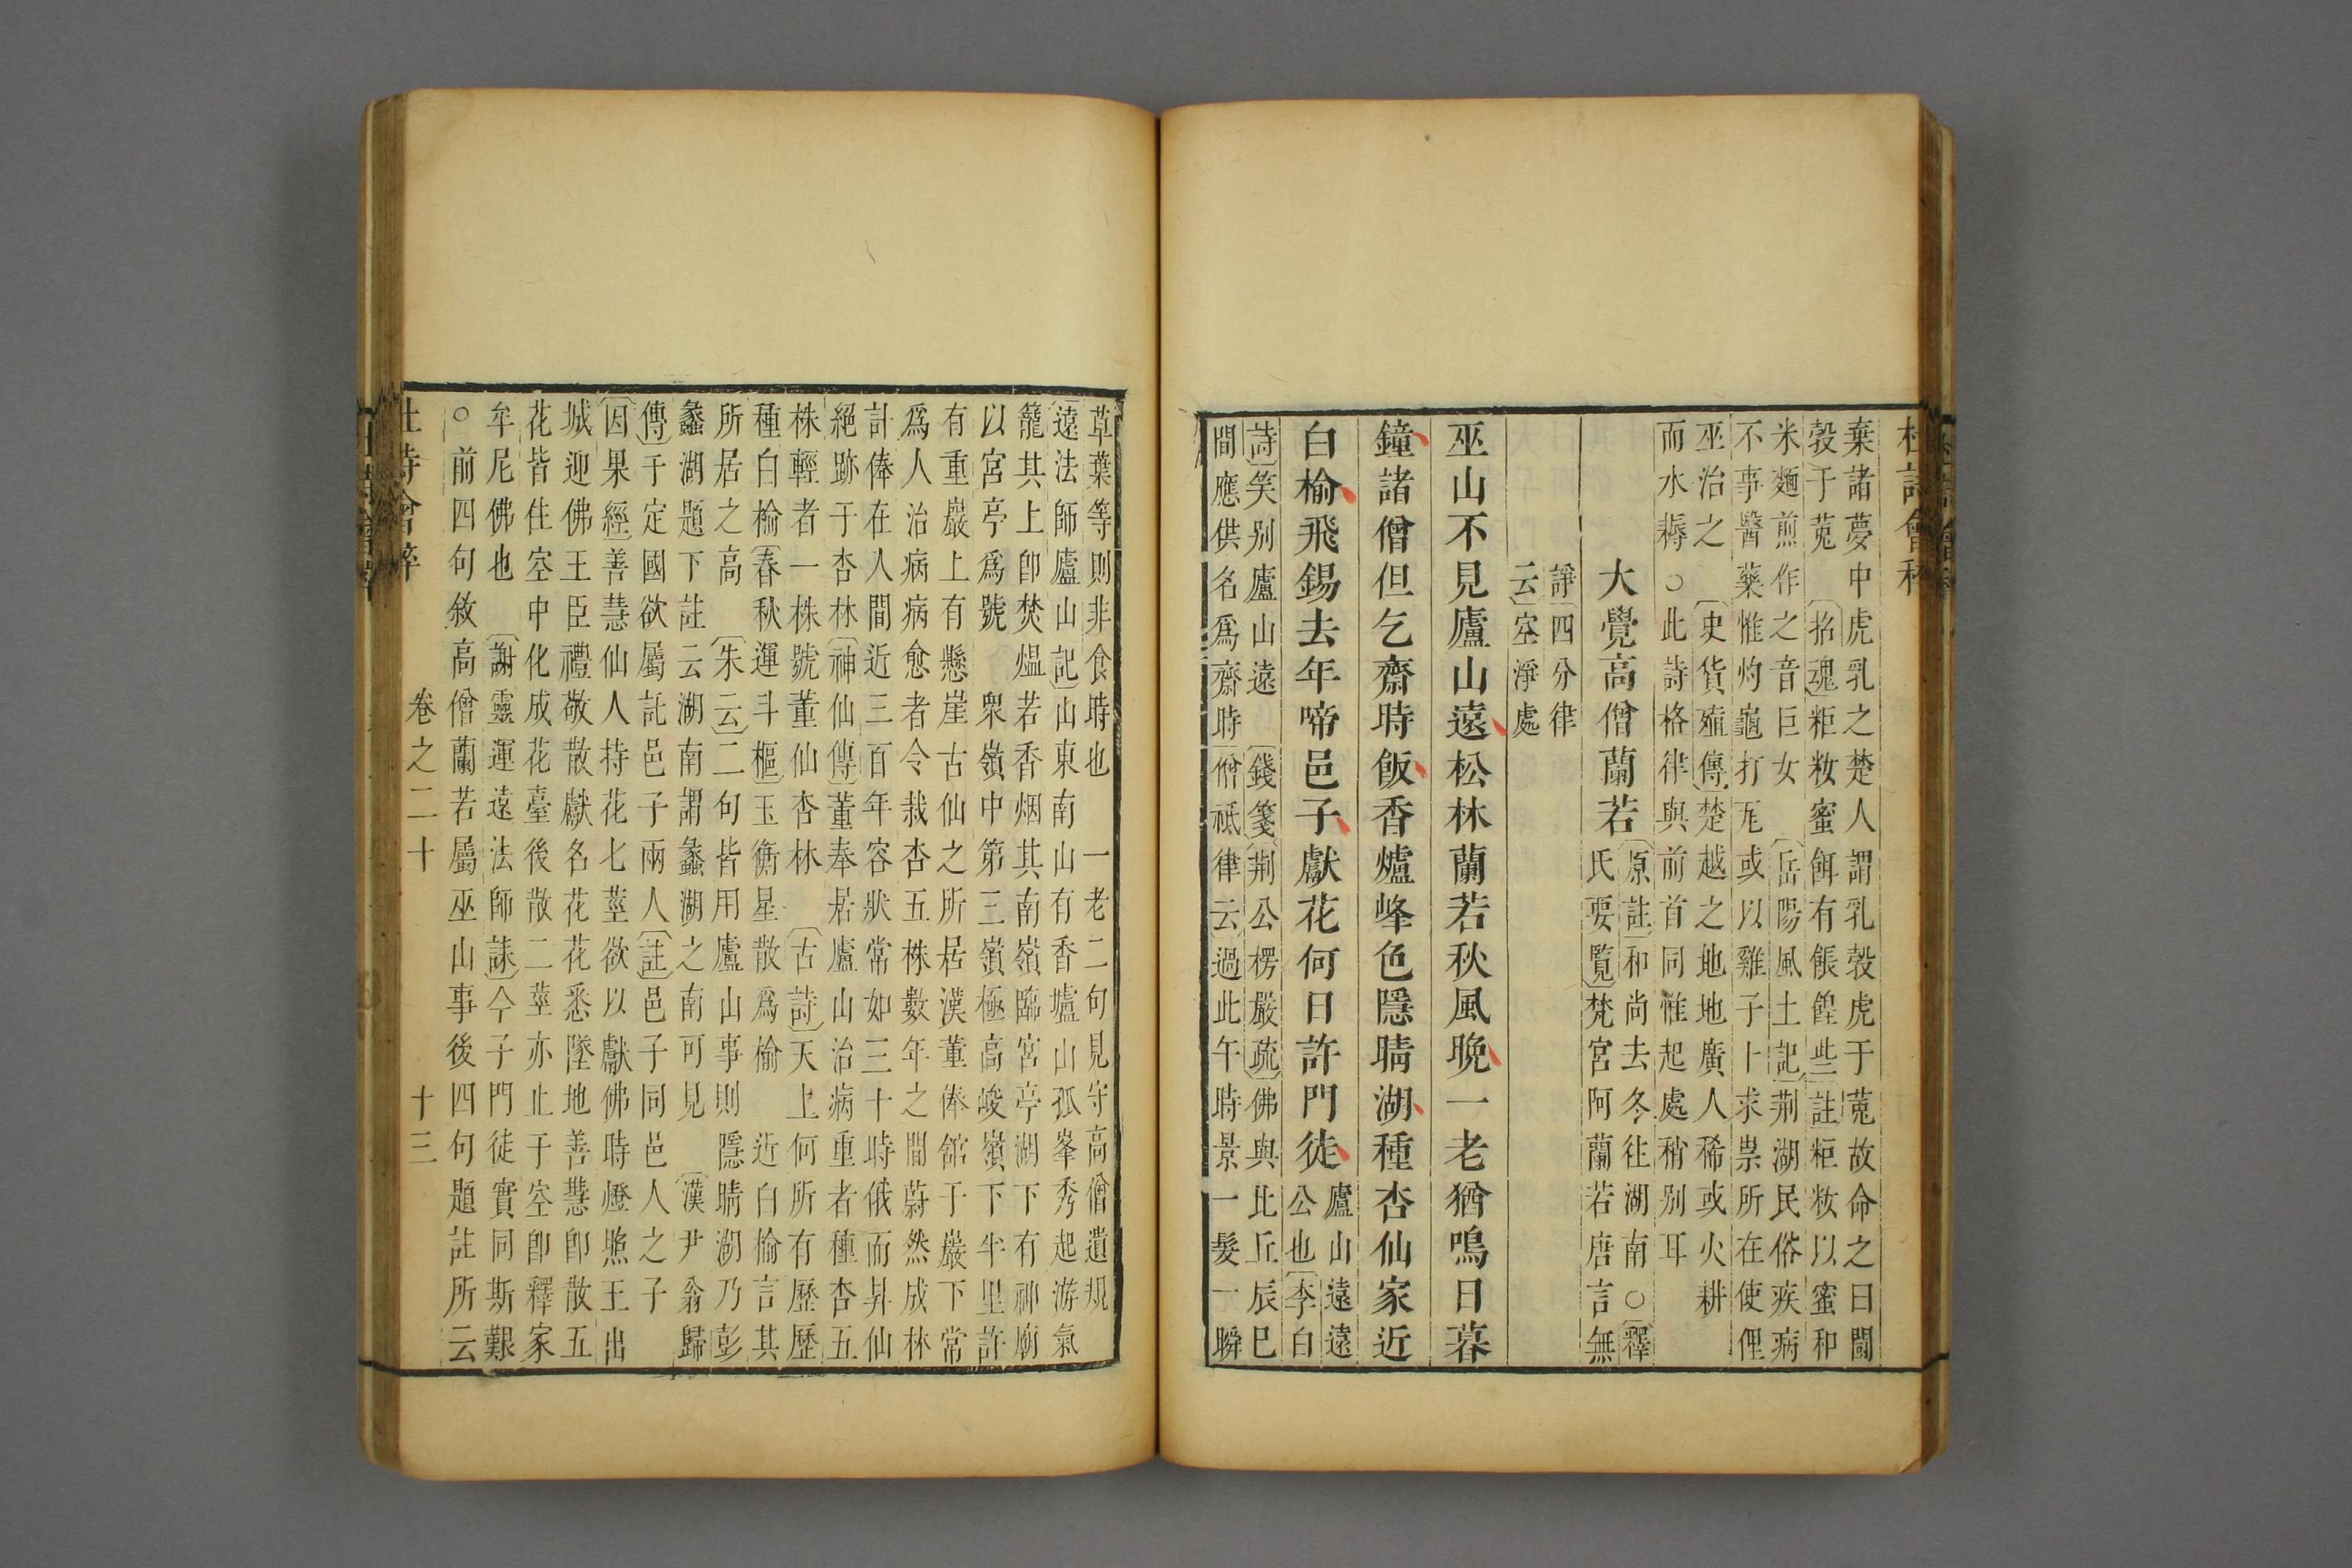 棄諸夢中虎乳之楚人謂乳穀虎于菟故命之曰鬬
穀于菟〔招魂〕粔籹蜜餌有餦餭些〔註〕粔籹以蜜和
米麵煎作之音巨女〔岳陽風土記〕荆湖民俗疾病
不事醫藥惟灼龜打瓦或以雞子卜求祟所在使俚
巫治之〔史貨殖傳〕楚越之地地廣人稀或火耕
而水耨○此詩格律與前首同惟起處稍別耳
大覺高僧蘭若
〔原註〕和尚去冬往湖南○〔釋
氏要覧〕梵宮阿蘭若唐言無
諍〔四分律
云〕空淨處
巫山不見廬山遠松林蘭若秋風晚一老猶鳴日暮
鐘諸僧但乞齋時飯香爐峰色隱晴湖種杏仙家近
白榆飛錫去年啼邑子獻花何日許門徒
廬山遠遠
公也〔李白
詩〕笑别廬山遠〔錢箋〕〔荆公楞嚴疏〕佛與比丘辰巳
間應供名爲齋時〔僧祇律云〕過此午時景一髮一瞬
草葉等則非食時也一老二句見守高僧遺規
遠法師廬山記〕山東南山有香爐山孤峯秀起游氣
籠其上卽焚熅若香烟其南嶺臨宮亭湖下有神廟
以宮亭爲號衆嶺中第三嶺極高峻嶺下半里許
有重巖上有懸崖古仙之所居漢董俸舘于巖下常
爲人治病病愈者令栽杏五株數年之間蔚然成林
計俸在人間近三百年容狀常如三十時俄而昇仙
絕跡于杏林〔神仙傳〕董奉居廬山治病重者種杏五
株輕者一株號董仙杏林〔古詩〕天上何所有歷歷
種白榆〔春秋運斗樞〕玉衡星散爲榆近白榆言其
所居之高〔朱云〕二句皆用廬山事則隱晴湖乃彭
蠡湖題下註云湖南謂蠡湖之南可見〔漢尹翁歸
傳〕于定國欲屬託邑子兩人〔註〕邑子同邑人之子
〔因果經〕善慧仙人持花七莖欲以獻佛時燈照王出
城迎佛王臣禮敬散獻名花花悉墜地善慧卽散五
花皆住空中化成花臺後散二莖亦止于空卽釋家
牟尼佛也〔謝靈運遠法師誄〕今子門徒實同斯艱
○前四句敘高僧蘭若屬巫山事後四句題註所云
卷之二十
十三